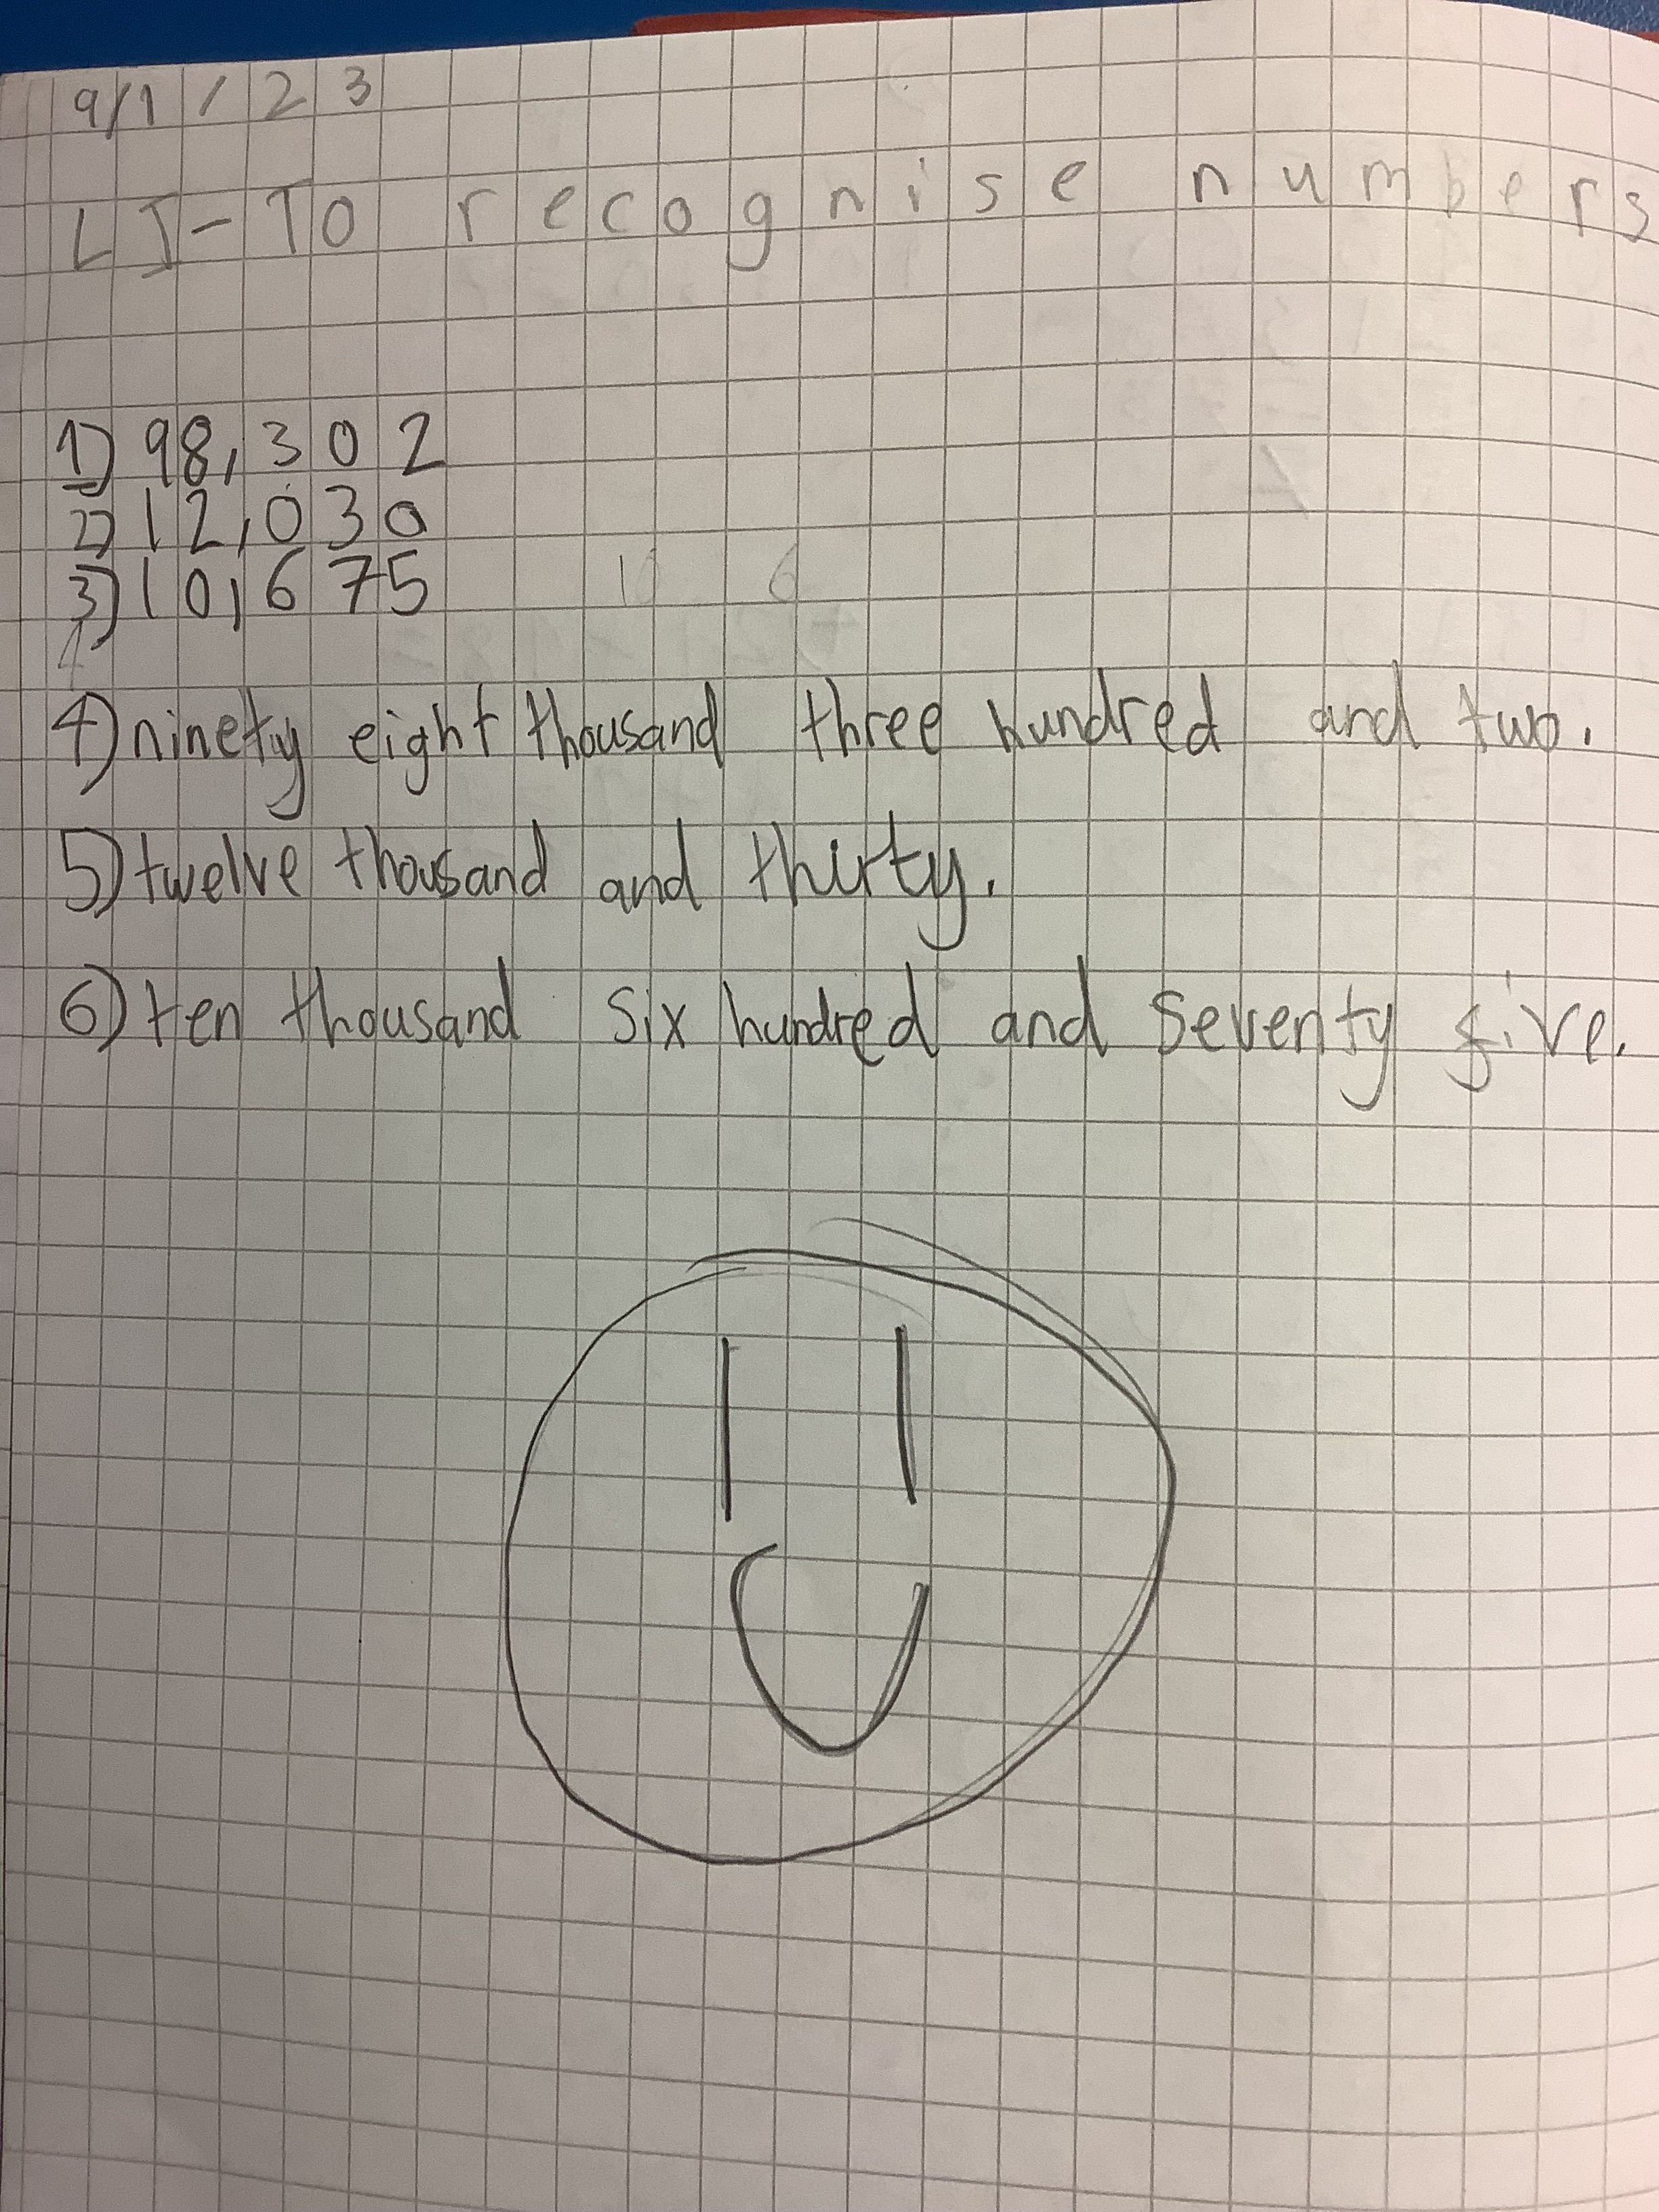 9/1/23
LI-To recognise numbers
1) 98,302
2) 12,030
3) 10,675
10 6
4) ninety eight thousand three hundred and two.
5) twelve thousand and thirty.
6) ten thousand six hundred and seventy five.